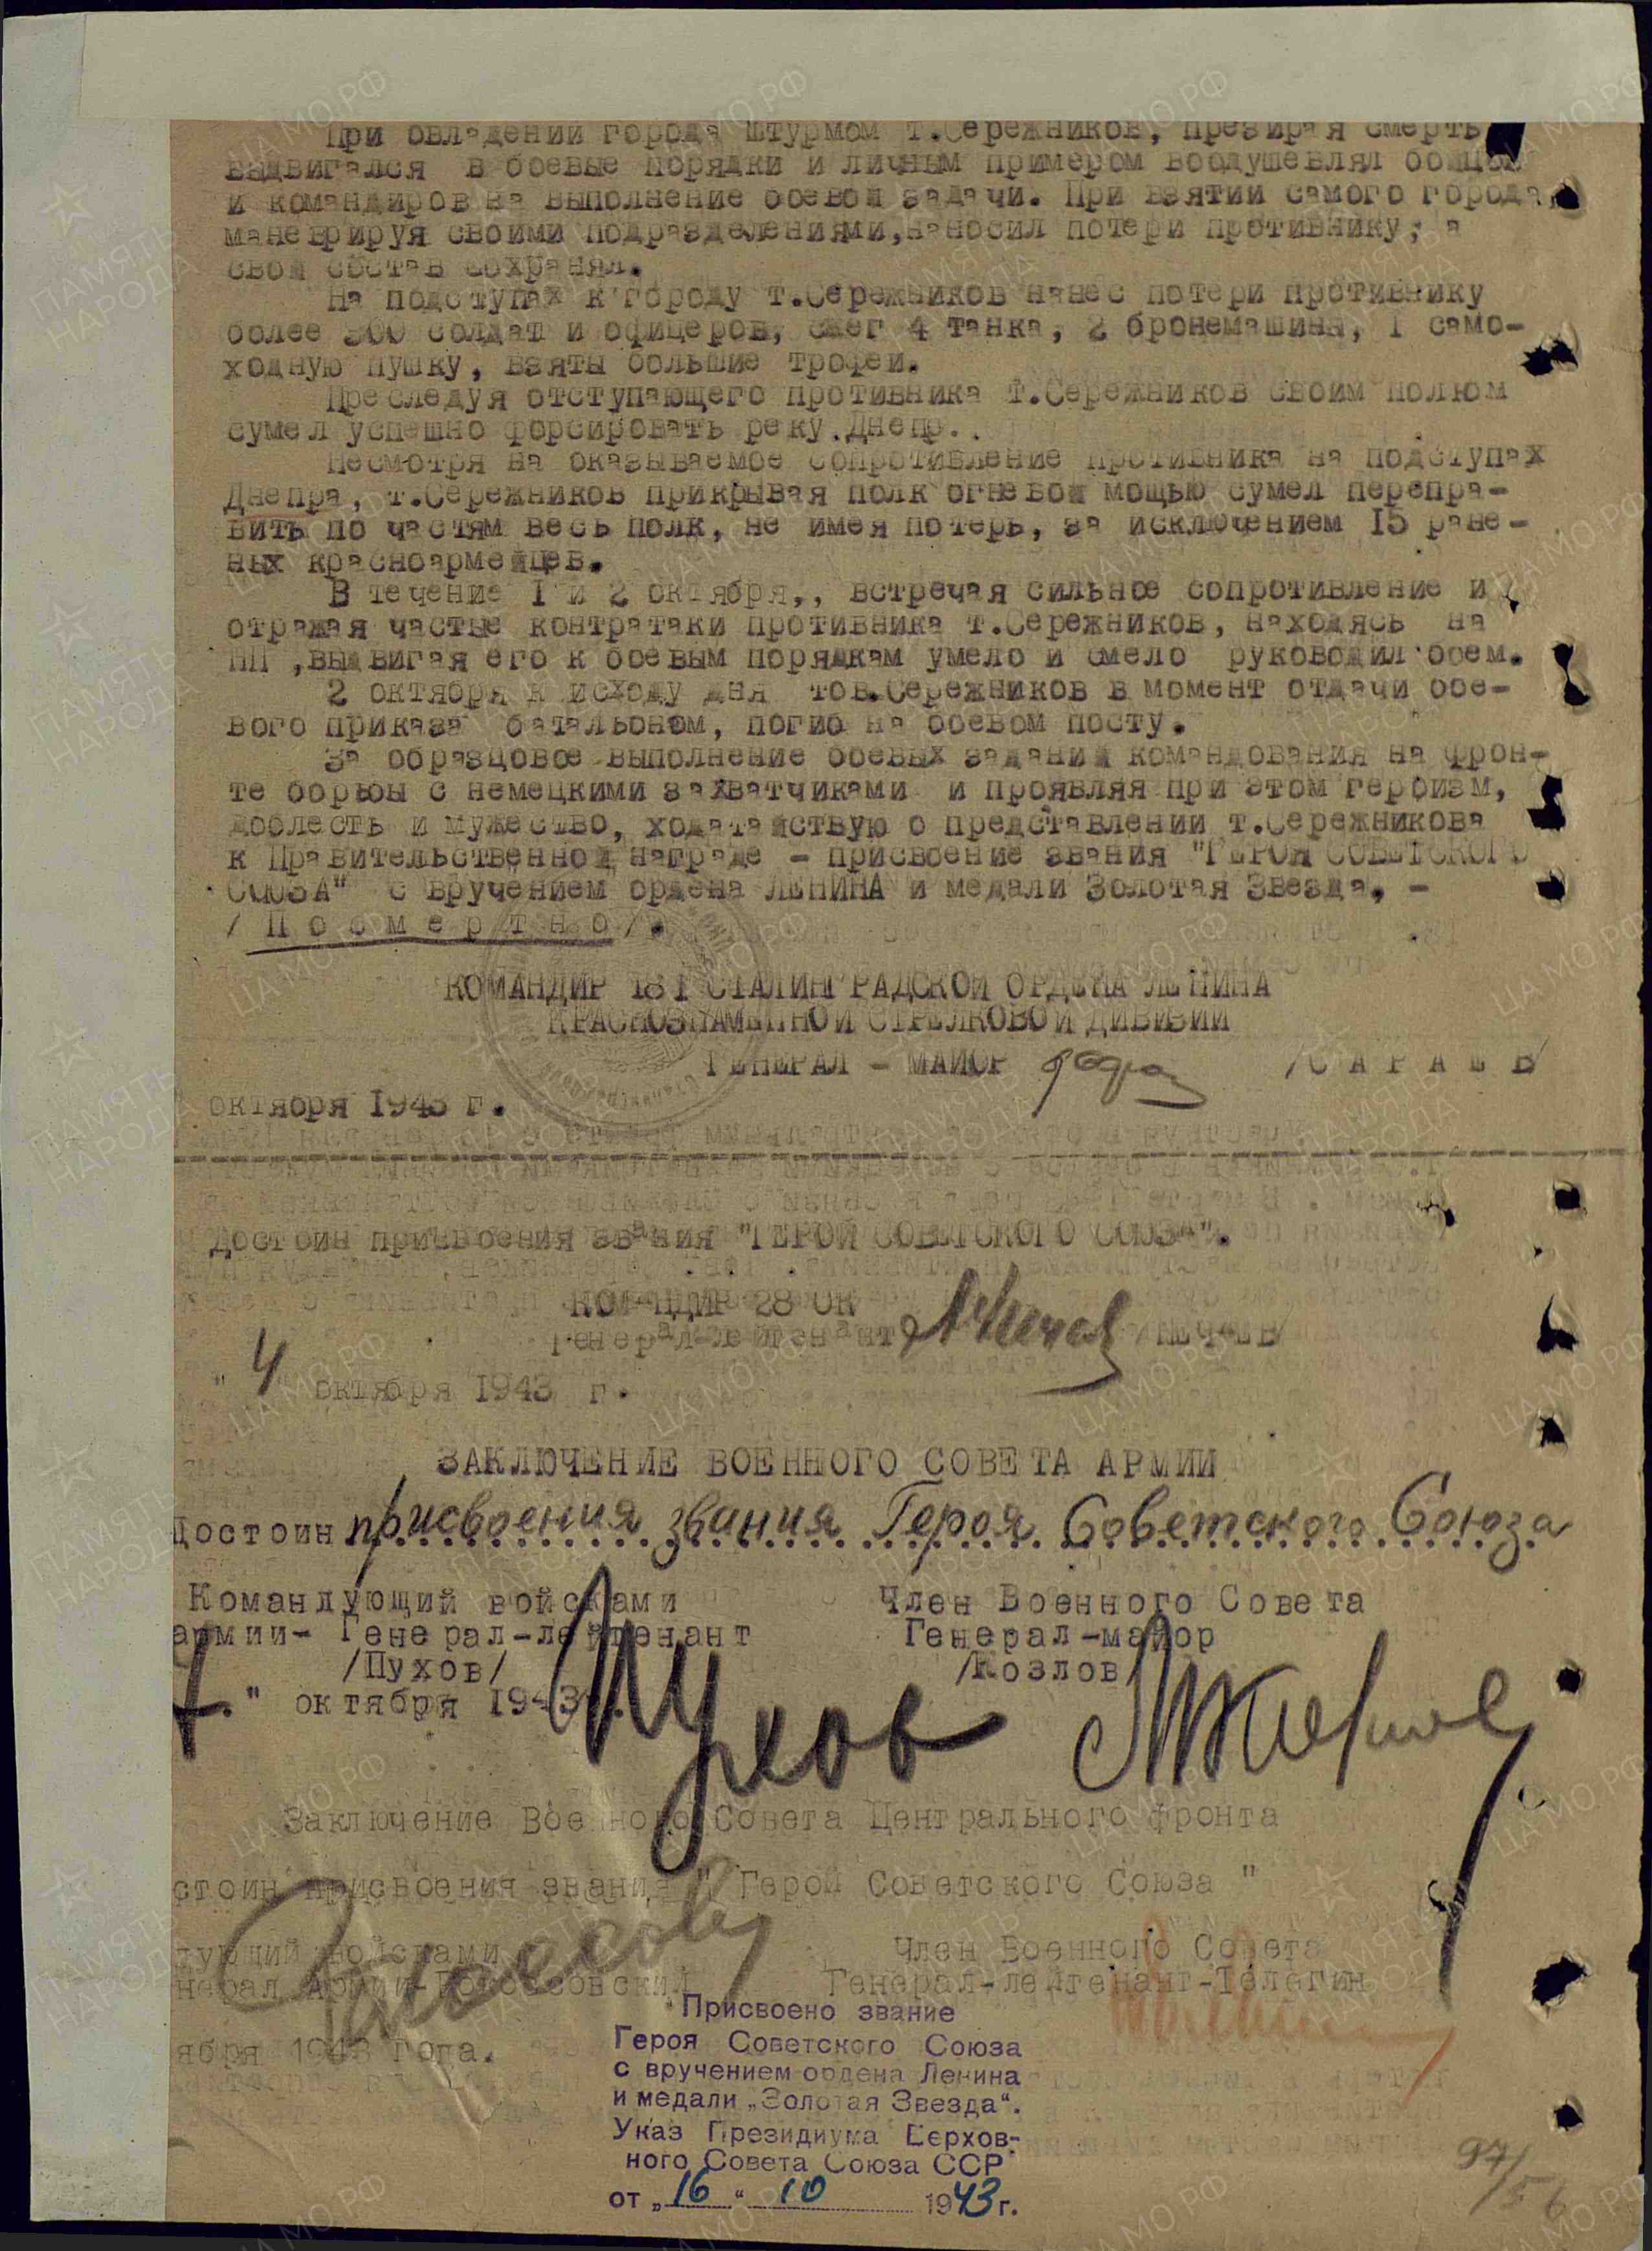 При овладении города штурмом т.Сережников, презирая смерть
выдвигался в боевые порядки и личным примером воодушевлял бойцов
и командиров на выполнение боевой задачи. При взятии самого города,
маневрируя своими подразделениями,наносил потери противнику, а
свой состав сохранял.
На подступах к городу т.Сережников нанес потери противнику
более 300 солдат и офицеров, сжег 4 танка, 2 бронемашины, 1 само-
ходную пушку, взяты большие трофеи.
Преследуя отступающего противника т.Сережников своим полком
сумел успешно форсировать реку Днепр.
Несмотря на оказываемое сопротивление противника на подступах
Днепра, т.Сережников прикрывая полк огневой мощью сумел перепра-
вить по частям весь полк, не имея потерь, за исключением 15 ране-
ных красноармейцев.
В течение 1 и 2 октября,, встречая сильное сопротивление и
отражая частые контратаки противника т.Сережников, находясь на
НП ,выдвигая его к боевым порядкам умело и смело руководил боем.
2 октября к исходу дня тов.Сережников в момент отдачи бое-
вого приказа батальоном, погиб на боевом посту.
За образцовое выполнение боевых заданий командования на фрон-
те борьбы с немецкими захватчиками и проявляя при этом героизм,
доблесть и мужество, ходатайствую о представлении т.Сережникова
к Правительственной награде - присвоение звания "ГЕРОЯ СОВЕТСКОГО
СОЮЗА" с вручением ордена ЛЕНИНА и медали Золотая Звезда, -
/ П о с м е р т н о /.
КОМАНДИР 181 СТАЛИНГРАДСКОЙ ОРДЕНА ЛЕНИНА
КРАСНОЗНАМЕННОЙ СТРЕЛКОВОЙ ДИВИЗИИ
ГЕНЕРАЛ - МАЙОР /С А Р А Е В/
октября 1943 г.
Достоин присвоения звания "ГЕРОЙ СОВЕТСКОГО СОЮЗА".
КОМАНДИР 28 СК
Генерал-лейтенант /НЕЧАЕВ/
" 4 " октября 1943 г.
ЗАКЛЮЧЕНИЕ ВОЕННОГО СОВЕТА АРМИИ
Достоин присвоения звания Героя Советского Союза
Командующий войсками Член Военного Совета
армии- Генерал-лейтенант Генерал-майор
/Пухов/ /Козлов/
" октября 1943 г.
Пухов
Заключение Военного Совета Центрального фронта
стоин присвоения звания " Герой Советского Союза "
дующий войсками Член Военного Совета
нерал Армии-Рокоссовский Генерал-лейтенант-Телегин
ября 1943 года.
Присвоено звание
Героя Советского Союза
с вручением ордена Ленина
и медали „Золотая Звезда“.
Указ Президиума Верхов-
ного Совета Союза ССР
от „ 16 “ 10 1943 г.
97/56
ПАМЯТЬ НАРОДА
ЦА МО РФ